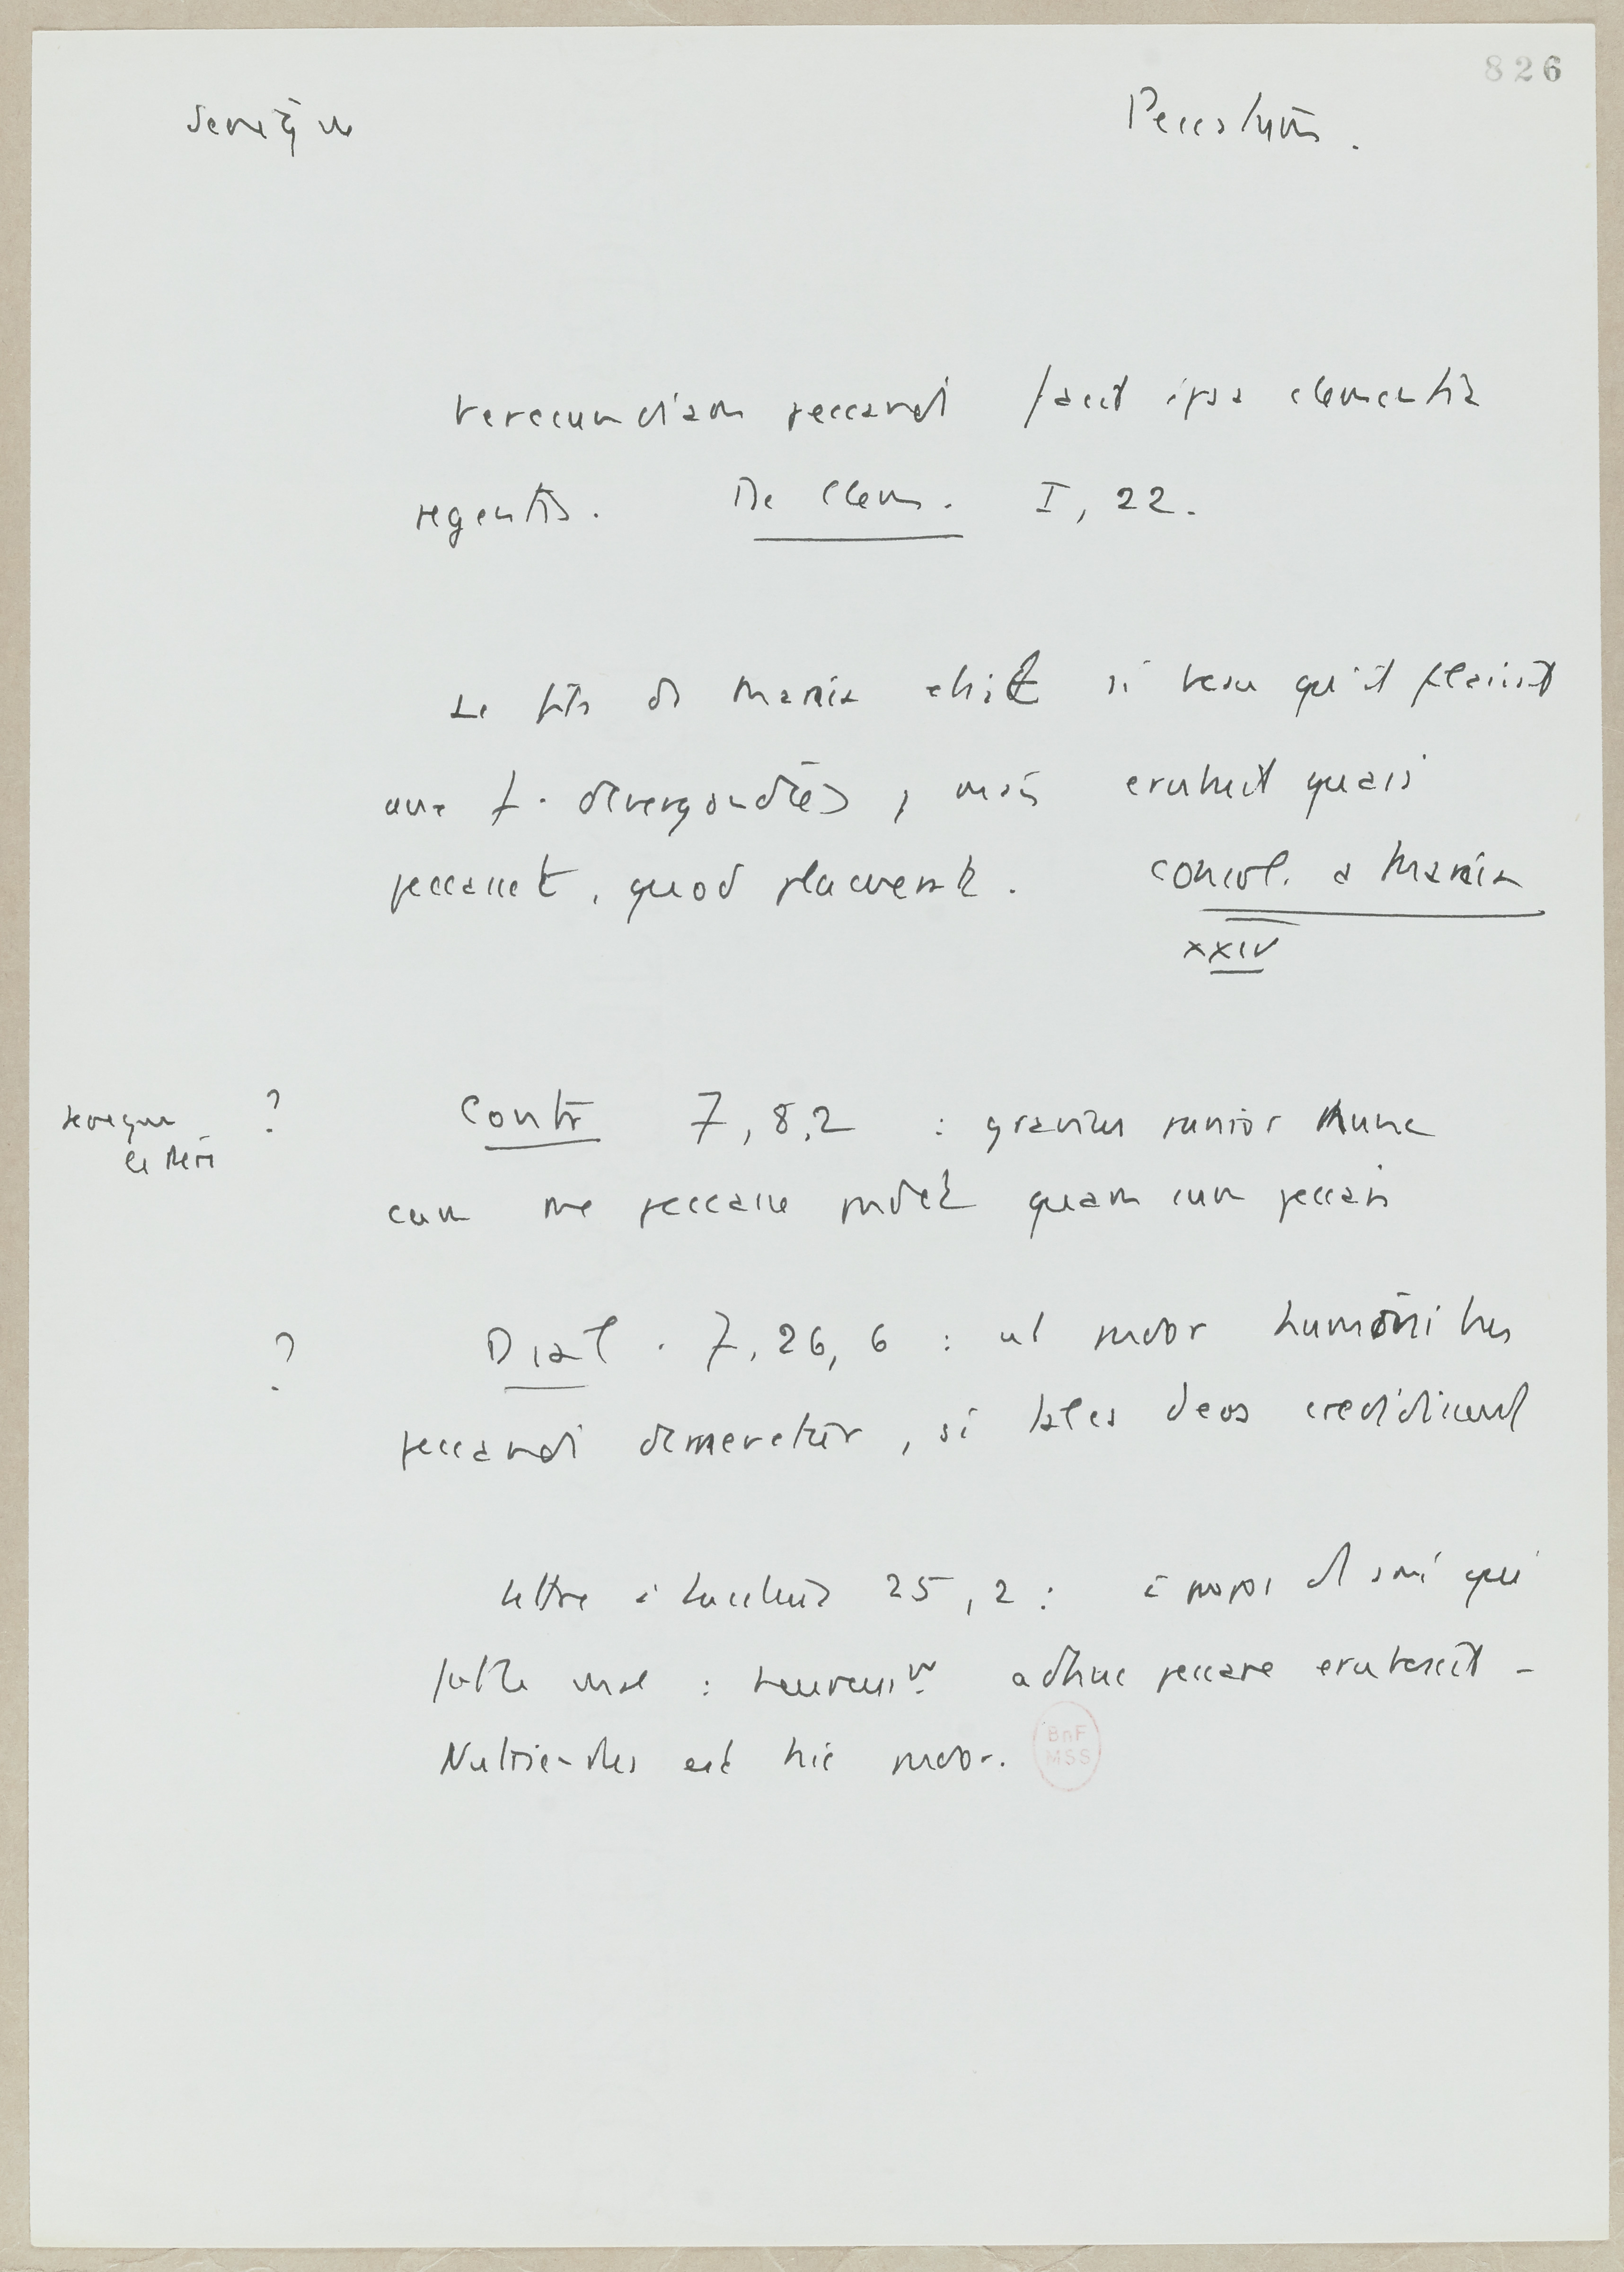 826
Sénèque
Peccatum.
verecundiam peccandi facit ipsa clementia
regentis. De Clem. I, 22.
Le fils de Marcia était si beau qu'il plaisait
aux f. dévergondées, mais erubuit quasi
peccasset, quod placuerat. Consol. à Marcia
XXIV
Sénèque ?
le Père
Contr 7, 8, 2 : gravius punior nunc
cum me peccasse pudet quam cum peccavi
? Dial. 7, 26, 6 : ut pudor hominibus
peccandi demeretur, si tales deos credidissent
Lettre à Lucilius 25, 2 : à propos d'ami qui
fait le mal : heureusnt adhuc peccare erubescit -
Nutriendus est hic pudor.
BnF
MSS